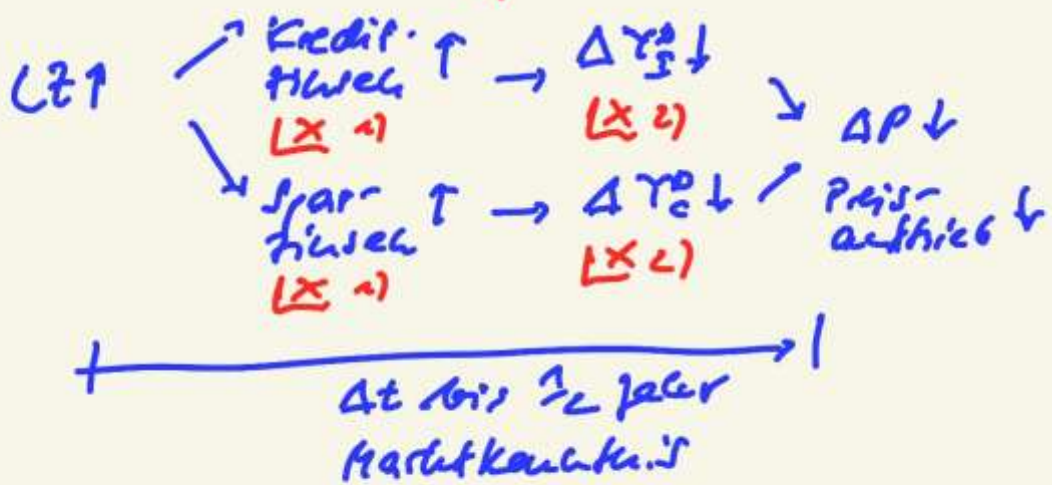 LZ↑
Kredit-
zinsen ↑ → ΔY^D_I ↓
(X 1) (X 2)
ΔP ↓
Spar-
zinsen ↑ → ΔY^D_C ↓
Preis-
auftrieb ↓
(X 1) (X 2)
Δt bis 1/2 Jahr
Marktkenntnis